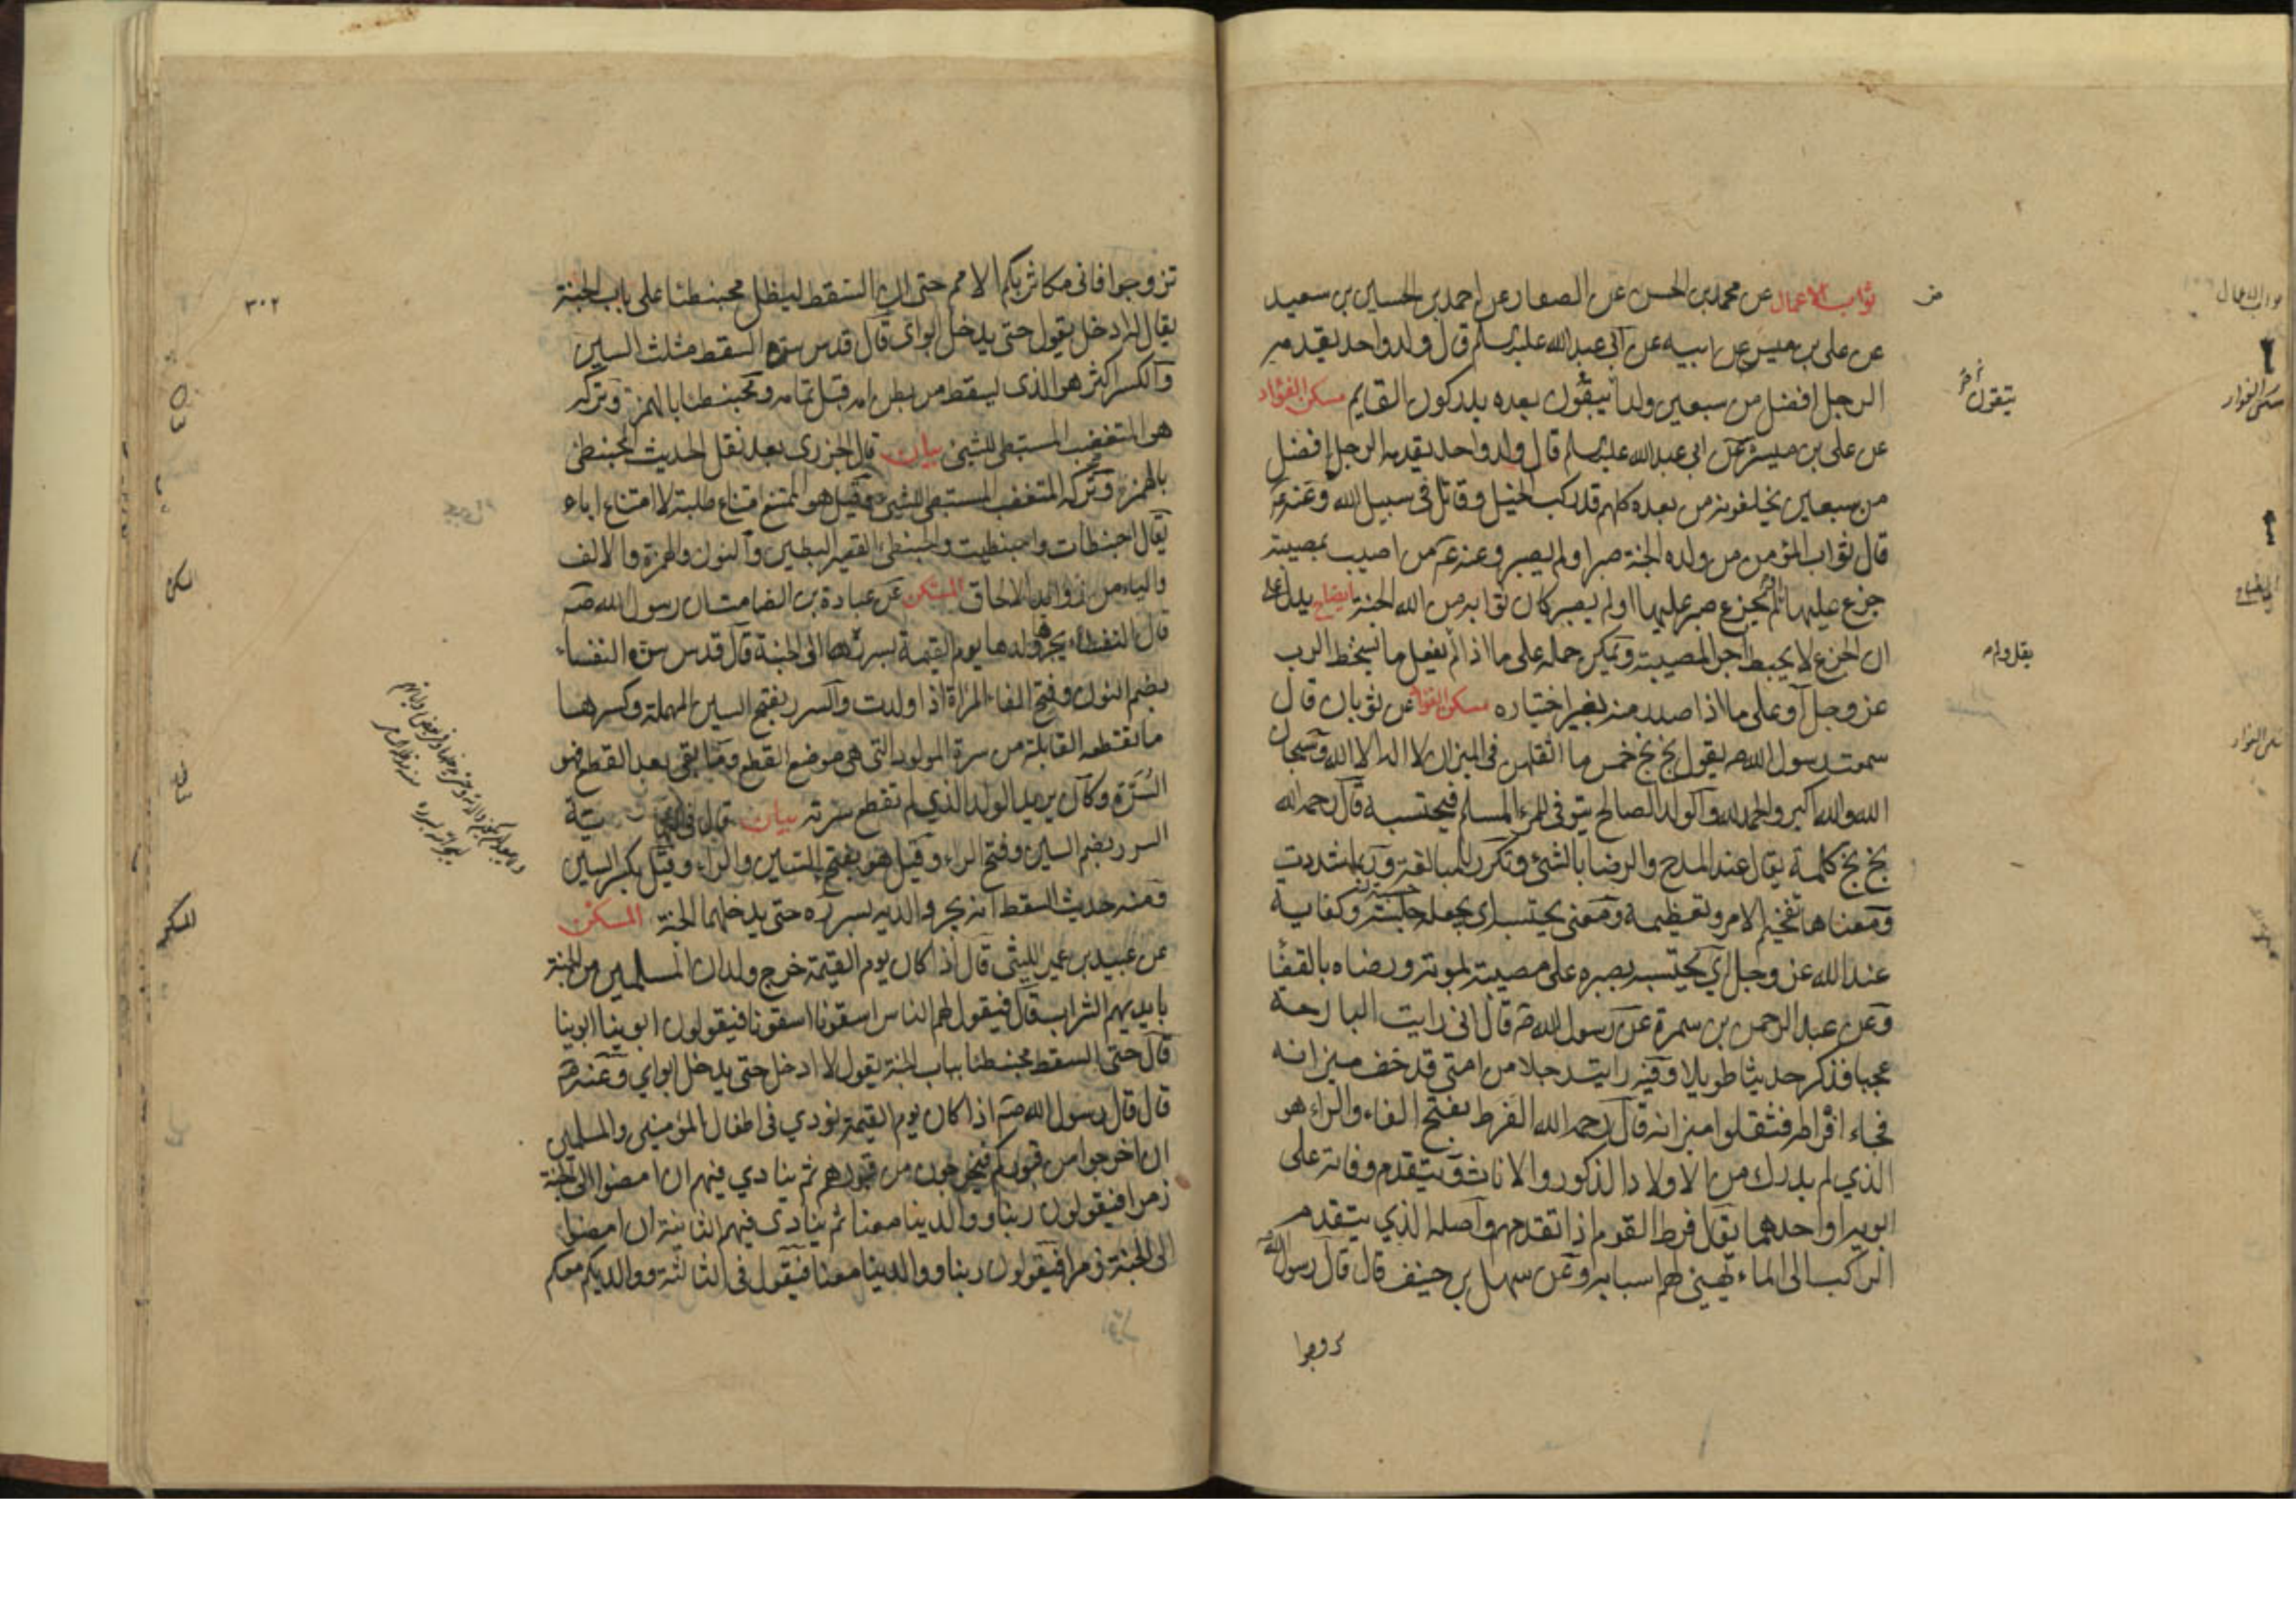 ثواب الاعمال عن محمد بن الحسن عن الصفار عن احمد بن الحسين بن سعيد
عن علي بن ميسر عن ابيه عن ابي عبد الله عليه السلم قال ولد واحد يقدمه
الرجل افضل من سبعين ولدا يبقون بعده يدركون القايم مسكن الفؤاد
عن علي بن ميسرة عن ابي عبد الله عليه السلم قال ولد واحد يقدمه الرجل افضل
من سبعين يخلفونه من بعده كلهم قد ركب الخيل وقاتل في سبيل الله وعنه ع
قال ثواب المؤمن من ولده الجنة صبر او لم يصبر وعنه ع من اصيب بمصيبة
جزع عليها ام لم يجزع صبر عليها او لم يصبر كان ثوابه من الله الجنة ايضاح يدل على
ان الجزع لا يحبط اجر المصيبة ويمكن حمله على ما اذا لم يفعل ما يسخط الرب
عز وجل او على ما اذا صدر منه بغير اختياره مسكن الفؤاد عن ثوبان قال
سمعت رسول الله ص يقول بخ بخ خمس ما اثقلهن في الميزان لا اله الا الله وسبحان
الله والله اكبر والحمد لله والولد الصالح يتوفى للمرء المسلم فيحتسبه قال رحمه الله
بخ بخ كلمة يقال عند المدح والرضا بالشئ وتكرر للمبالغة وربما شددت
ومعناها تفخيم الامر وتعظيمه ومعنى يحتسبه اي يجعله حسبة وكفاية
عند الله عز وجل اي يحتسبه بصبره على مصيبته بموته ورضاه بالقضا
وعن عبد الرحمن بن سمرة عن رسول الله ص قال اني رايت البارحة
عجبا فذكر حديثا طويلا وفيه رايت رجلا من امتي قد خف ميزانه
فجاء افراطه فثقلوا ميزانه قال رحمه الله الفرط بفتح الفاء والراء هو
الذي لم يدرك من الاولاد الذكور والاناث ويتقدم وفاته على
ابويه او احدهما يقال فرط القوم اذا تقدمهم واصله الذي يتقدم
الركب الى الماء يهيئ لهم اسبابه وعن سهل بن حنيف قال قال رسول الله ص
تزوجوا
٣٠٢
تزوجوا فاني مكاثر بكم الامم حتى ان السقط ليظل محبنطئا على باب الجنة
يقال له ادخل يقول حتى يدخل ابواي قال قدس سره السقط مثلث السين
والكسر اكثر هو الذي يسقط من بطن امه قبل تمامه ومحبنطئا بالهمز وتركه
هو المتغضب المستبطئ للشئ بيان قال الجزري بعد نقل الحديث المحبنطئ
بالهمزة وتركه المتغضب المستبطئ للشئ وقيل هو الممتنع امتناع طلبة لا امتناع اباء
يقال احبنطات واحبنطيت والحبنطى القصير البطين والنون والهمزة والالف
والياء من زوائد الالحاق المسكن عن عبادة بن الصامت ان رسول الله ص
قال النفساء يجرها ولدها يوم القيمة بسرره الى الجنة قال قدس سره النفساء
بضم النون وفتح الفاء المراة اذا ولدت والسرر بفتح السين المهملة وكسرها
ما تقطعه القابلة من سرة المولود التي هي موضع القطع وما بقي بعد القطع فهو
السرة وكان يريد الولد الذي لم تقطع سرته بيان قال في النهاية
السرر بضم السين وفتح الراء وقيل هو بفتح السين والراء وقيل بكسر السين
ومنه حديث السقط انه يجر والديه بسرره حتى يدخلهما الجنة المسكن
عن عبيد بن عمير الليثي قال اذا كان يوم القيمة خرج ولدان المسلمين من الجنة
بايديهم الشراب قال فيقول لهم الناس اسقونا اسقونا فيقولون ابوينا ابوينا
قال حتى السقط محبنطئا بباب الجنة يقول لا ادخل حتى يدخل ابواي وعنه ص
قال قال رسول الله ص اذا كان يوم القيمة نودي في اطفال المؤمنين والمسلمين
ان اخرجوا من قبوركم فيخرجون من قبورهم ثم ينادي فيهم ان امضوا الى الجنة
زمرا فيقولون ربنا ووالدينا معنا ثم ينادى فيهم الثانية ان امضوا
الى الجنة زمرا فيقولون ربنا ووالدينا معنا فيقول في الثالثة ووالديكم معكم